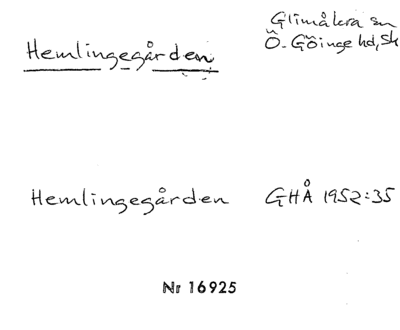 Hemlingegården
Glimåkra sn
Ö. Göinge hd, Sk
Hemlingegården GHÅ 1952:35
Nr 16925